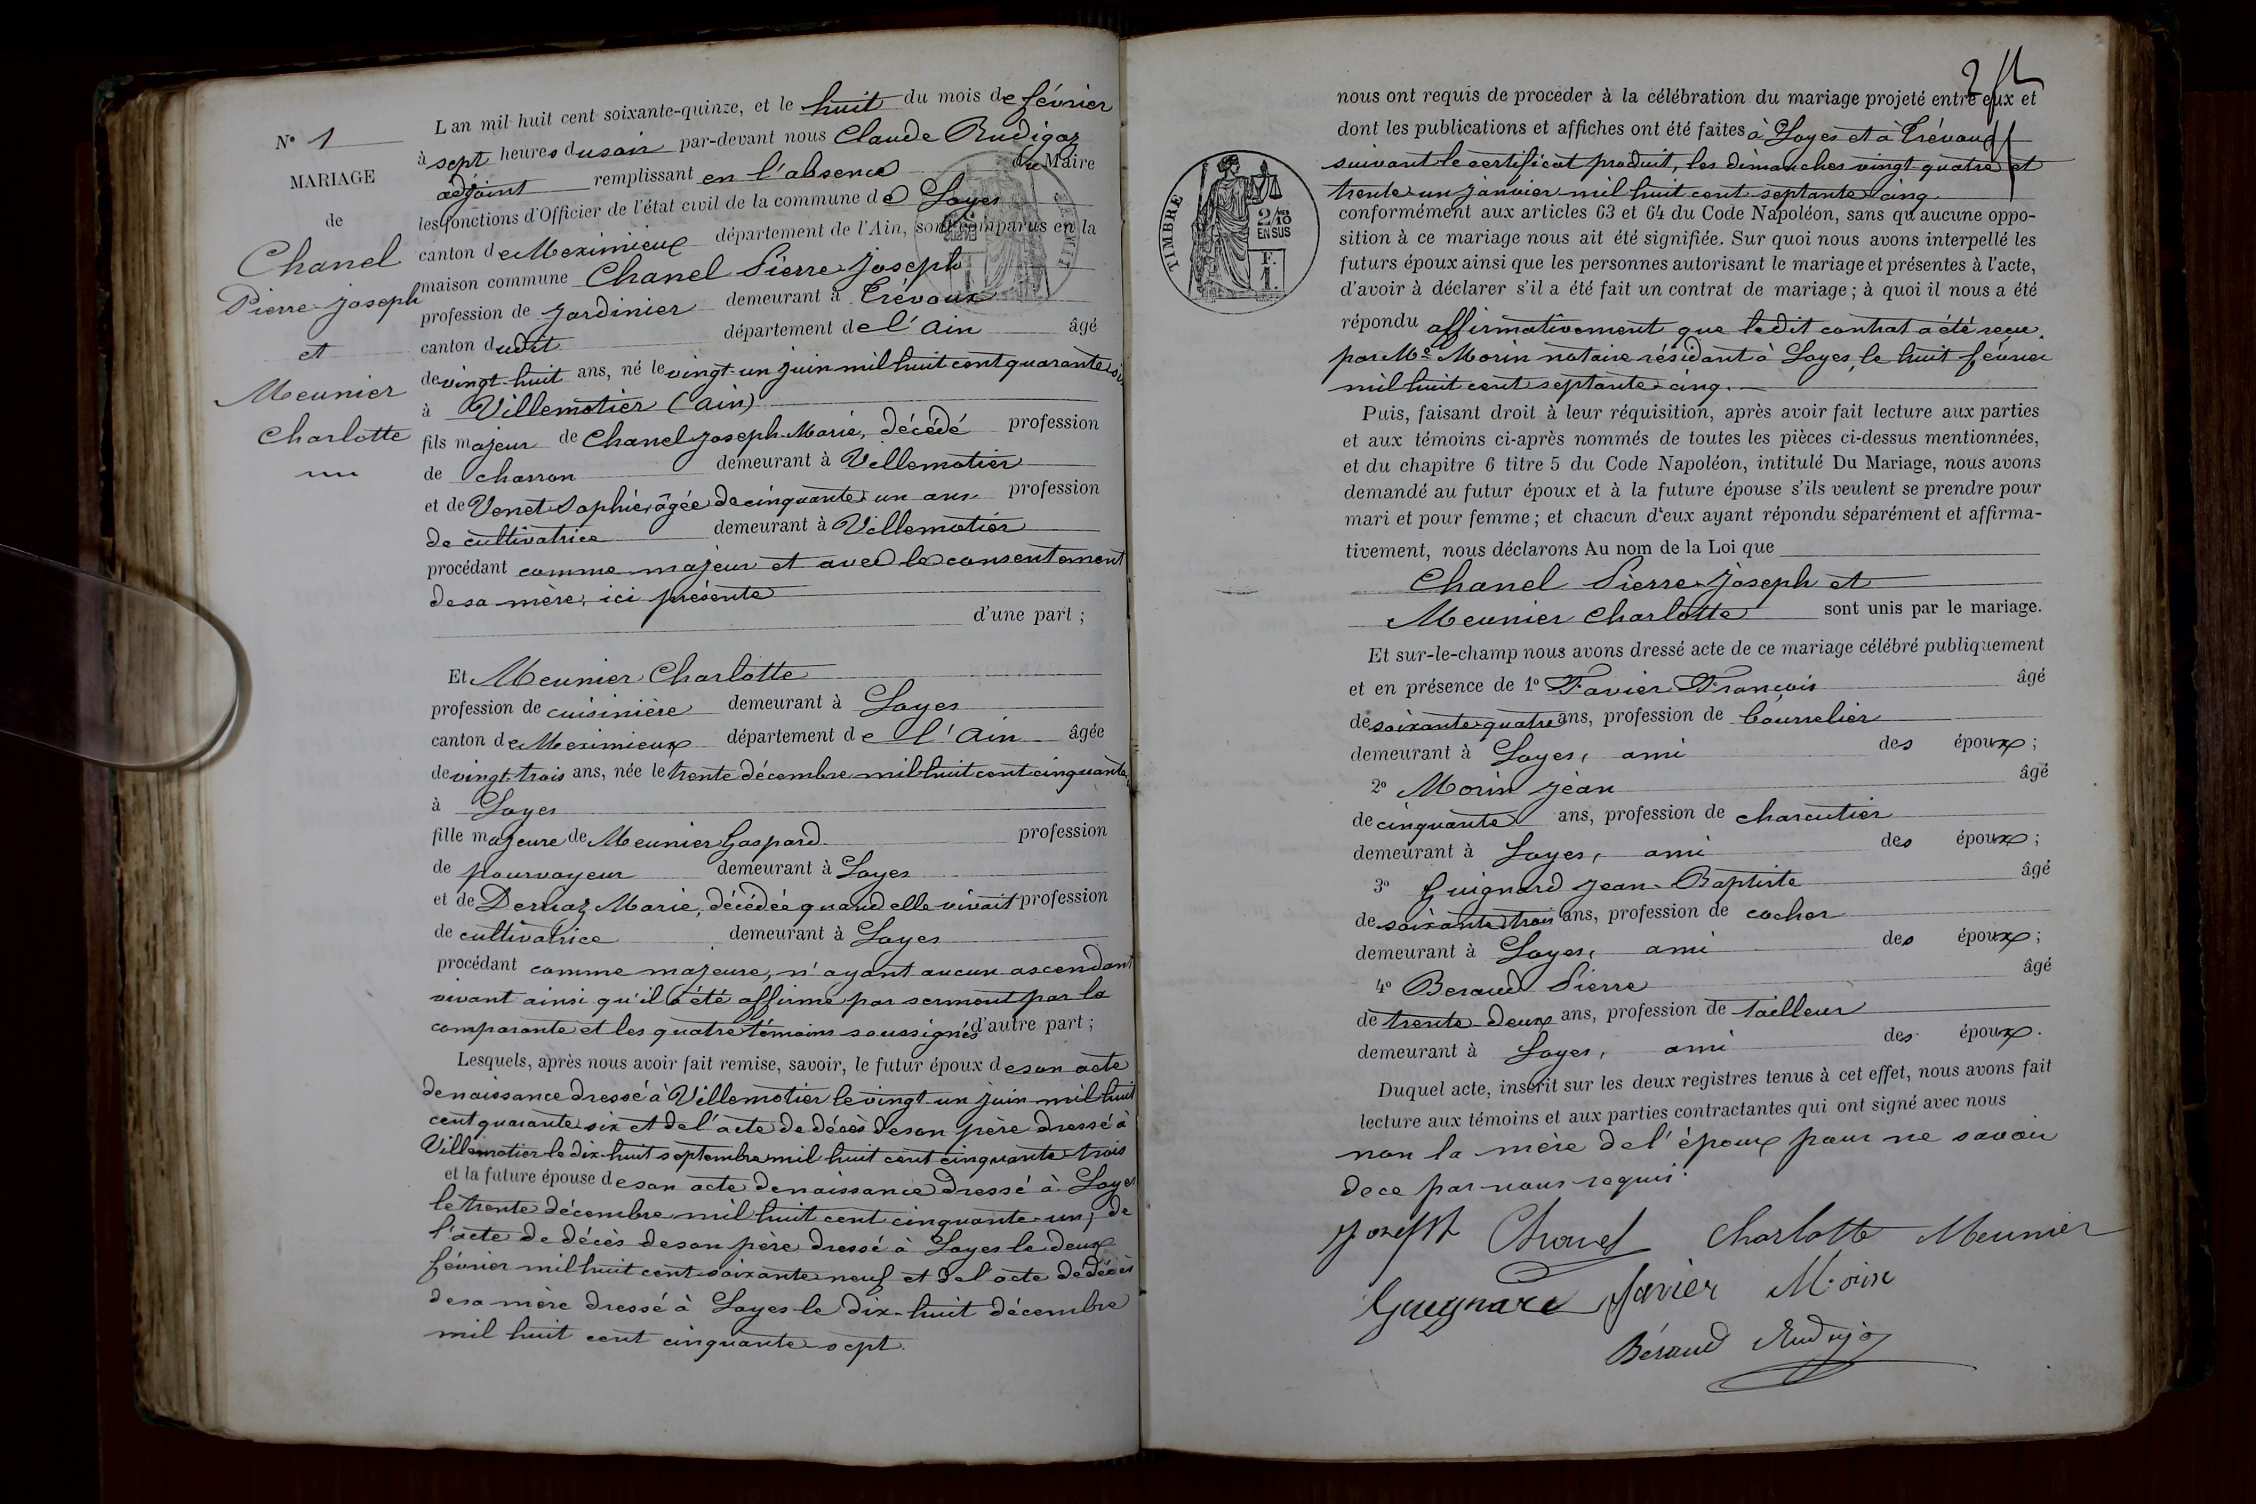 N° 1
MARIAGE
de
Chanel
Pierre-joseph
et
Meunier
Charlotte
L'an mil huit cent soixante-quinze, et le huit du mois de février
à sept heures du soir par-devant nous Claude Rudigoz
adjoint remplissant en l'absence du Maire
les fonctions d'Officier de l'état civil de la commune de Loyes
canton de Meximieux département de l'Ain, sont comparus en la
maison commune Chanel Pierre-joseph
profession de jardinier demeurant à Trévoux
canton dudit département de l'Ain âgé
de vingt-huit ans, né le vingt-un juin mil huit cent quarante six
à Villemotier (Ain)
fils majeur de Chanel Joseph-Marie, décédé profession
de charron demeurant à Villemotier
et de Venet Sophie, âgée de cinquante un ans profession
de cultivatrice demeurant à Villemotier
procédant comme majeur et avec le consentement
de sa mère, ici présente
d'une part ;
Et Meunier Charlotte
profession de cuisinière demeurant à Loyes
canton de Meximieux département de l'Ain âgée
de vingt-trois ans, née le trente décembre mil huit cent cinquante
à Loyes
fille majeure de Meunier Gaspard profession
de pourvoyeur demeurant à Loyes
et de Dernaz Marie, décédée quand elle vivait profession
de cultivatrice demeurant à Loyes
procédant comme majeure, n'ayant aucun ascendant
vivant ainsi qu'il a été affirmé par serment par la
comparante et les quatre témoins soussignés d'autre part ;
Lesquels, après nous avoir fait remise, savoir, le futur époux de son acte
de naissance dressé à Villemotier le vingt-un juin mil huit
cent quarante six et de l'acte de décès de son père dressé à
Villemotier le dix-huit septembre mil huit cent cinquante trois
et la future épouse de son acte de naissance dressé à Loyes
le trente décembre mil huit cent cinquante-un, de
l'acte de décès de son père dressé à Loyes le deux
février mil huit cent soixante neuf et de l'acte de décès
de sa mère dressé à Loyes le dix-huit décembre
mil huit cent cinquante-sept.
2
nous ont requis de procéder à la célébration du mariage projeté entre eux et
dont les publications et affiches ont été faites à Loyes et à Trévoux
suivant le certificat produit, les dimanches vingt quatre et
trente un janvier mil huit cent septante cinq
TIMBRE
2/10 EN SUS
F. 1.
conformément aux articles 63 et 64 du Code Napoléon, sans qu'aucune oppo-
sition à ce mariage nous ait été signifiée. Sur quoi nous avons interpellé les
futurs époux ainsi que les personnes autorisant le mariage et présentes à l'acte,
d'avoir à déclarer s'il a été fait un contrat de mariage ; à quoi il nous a été
répondu affirmativement que ledit contrat a été reçu
par Me Morin notaire résidant à Loyes, le huit février
mil huit cent septante-cinq.
Puis, faisant droit à leur réquisition, après avoir fait lecture aux parties
et aux témoins ci-après nommés de toutes les pièces ci-dessus mentionnées,
et du chapitre 6 titre 5 du Code Napoléon, intitulé Du Mariage, nous avons
demandé au futur époux et à la future épouse s'ils veulent se prendre pour
mari et pour femme ; et chacun d'eux ayant répondu séparément et affirma-
tivement, nous déclarons Au nom de la Loi que
Chanel Pierre-Joseph et
Meunier Charlotte sont unis par le mariage.
Et sur-le-champ nous avons dressé acte de ce mariage célébré publiquement
et en présence de 1° Favier François âgé
de soixante-quatre ans, profession de bourrelier
demeurant à Loyes, ami des époux ;
2° Morin Jean âgé
de cinquante ans, profession de charcutier
demeurant à Loyes, ami des époux ;
3° Guignard Jean-Baptiste âgé
de soixante trois ans, profession de cocher
demeurant à Loyes, ami des époux ;
4° Beraud Pierre âgé
de trente-deux ans, profession de tailleur
demeurant à Loyes, ami des époux.
Duquel acte, inscrit sur les deux registres tenus à cet effet, nous avons fait
lecture aux témoins et aux parties contractantes qui ont signé avec nous
non la mère de l'époux pour ne savoir
de ce par nous requis.
joseph Chanel Charlotte Meunier
Guignard favier Morin
Béraud Rudigoz